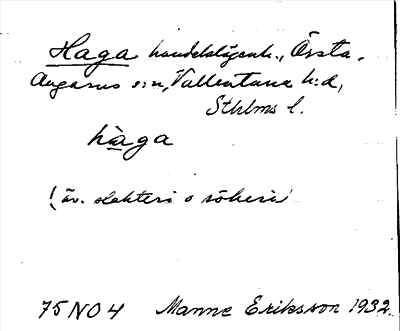 Haga handelslägenh., Örsta,
Angarns s:n, Vallentuna h:d,
Sthlms l.
hàga
(äv. slakteri o rökeri
75 NO 4 Manne Eriksson 1932.